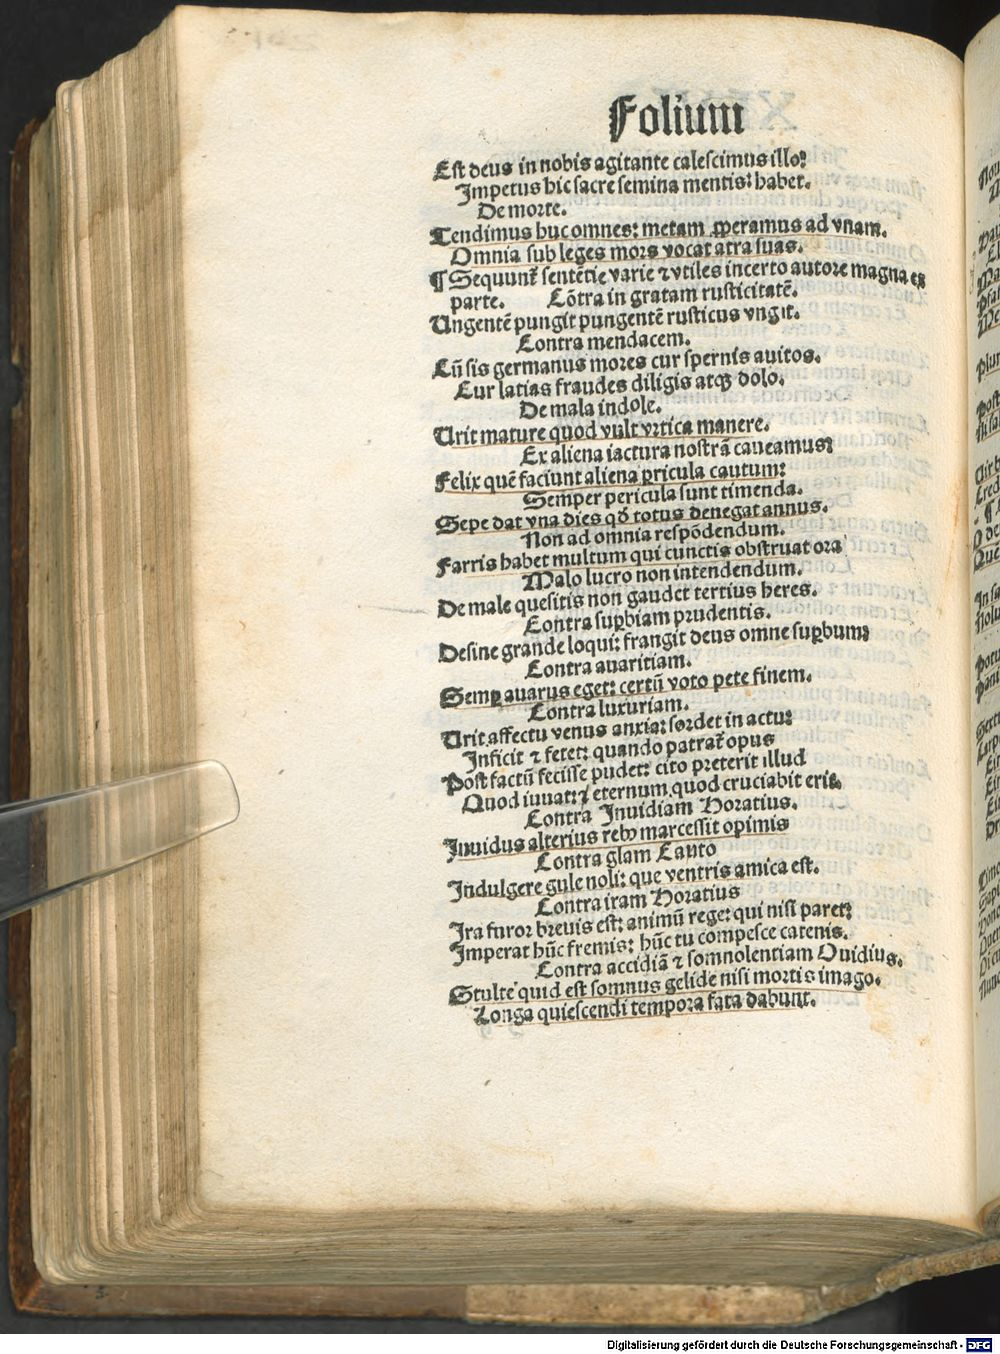 Folium
Est deus in nobis agitante calescimus illo:
Impetus hic sacre semina mentis: habet.
De morte.
Tendimus huc omnes: metam ꝓperamus ad vnam.
Omnia sub leges mors vocat atra suas.
¶ Sequunt᷑ sentētie varie ⁊ vtiles incerto autore magna ex
parte. Cōtra in gratam rusticitatē.
Ungentē pungit pungentē rusticus vngit.
Contra mendacem.
Cū sis germanus mores cur spernis auitos.
Cur latias fraudes diligis atqꝫ dolo.
De mala indole.
Urit mature quod vult vrtica manere.
Ex aliena iactura nostrā caueamus:
Felix quē faciunt aliena ꝑricula cautum:
Semper pericula sunt timenda.
Sepe dat vna dies qd̄ totus denegat annus.
Non ad omnia respōdendum.
Farris habet multum qui cunctis obstruat ora
Malo lucro non intendendum.
De male quesitis non gaudet tertius heres.
Contra suꝑbiam prudentis.
Desine grande loqui: frangit deus omne suꝑbum:
Contra auaritiam.
Semꝑ auarus eget: certū voto pete finem.
Contra luxuriam.
Urit affectu venus anxia: sordet in actu:
Inficit ⁊ fetet: quando patrat᷑ opus
Post factū fecisse pudet: cito preterit illud
Quod iuuat: ⁊ eternum quod cruciabit erit.
Contra Inuidiam Horatius.
Inuidus alterius rebꝰ marcessit opimis
Contra glam Cauto
Indulgere gule noli: que ventris amica est.
Contra iram Horatius
Ira furor breuis est: animū rege: qui nisi paret:
Imperat hūc fremis: hūc tu compesce catenis.
Contra accidiā ⁊ somnolentiam Ouidius.
Stulte quid est somnus gelide nisi mortis imago.
Longa quiescendi tempora fata dabunt.
Digitalisierung gefördert durch die Deutsche Forschungsgemeinschaft - DFG